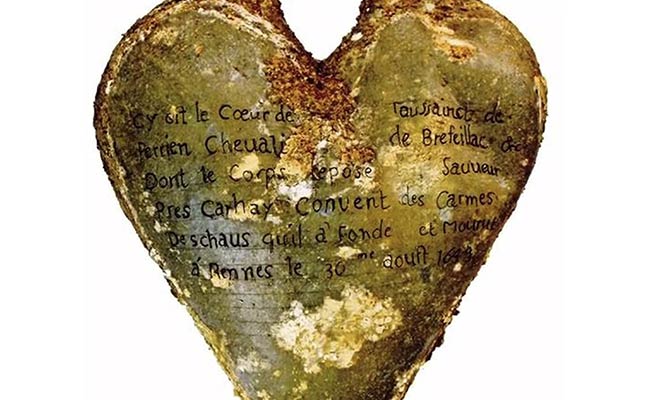 Cy Git le Cœur de Toussainct de
Perrien Chevali de Brefeillac
Dont le Corps Repose Sauveur
Pres Carhay Convent des Carmes
Deschaus quil à Fonde et Mourut
à Rennes le 30 me aoust 1649